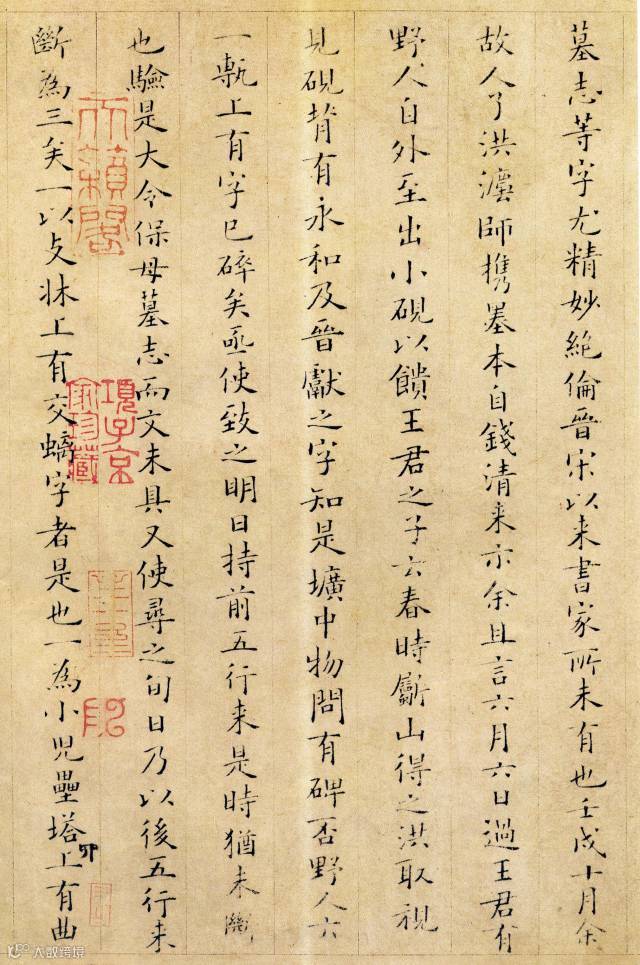 墓志等字尤精妙絶倫晉宋以来書家所未有也壬戌十月余
故人了洪瀍師携墨本自錢清来示余且言六月六日過王君有
野人自外至出小硯以饋王君之子云春時斸山得之洪取視
見硯背有永和及晉獻之字知是壙中物問有碑否野人云
一甎上有字已碎矣亟使致之明日持前五行来是時猶未斷
也驗是大令保母墓志而文未具又使尋之旬日乃以後五行来
斷為三矣一以支牀上有交螭字者是也一為小兒壘塔上有曲
天籟閣
項子京家珍藏
大数跨境